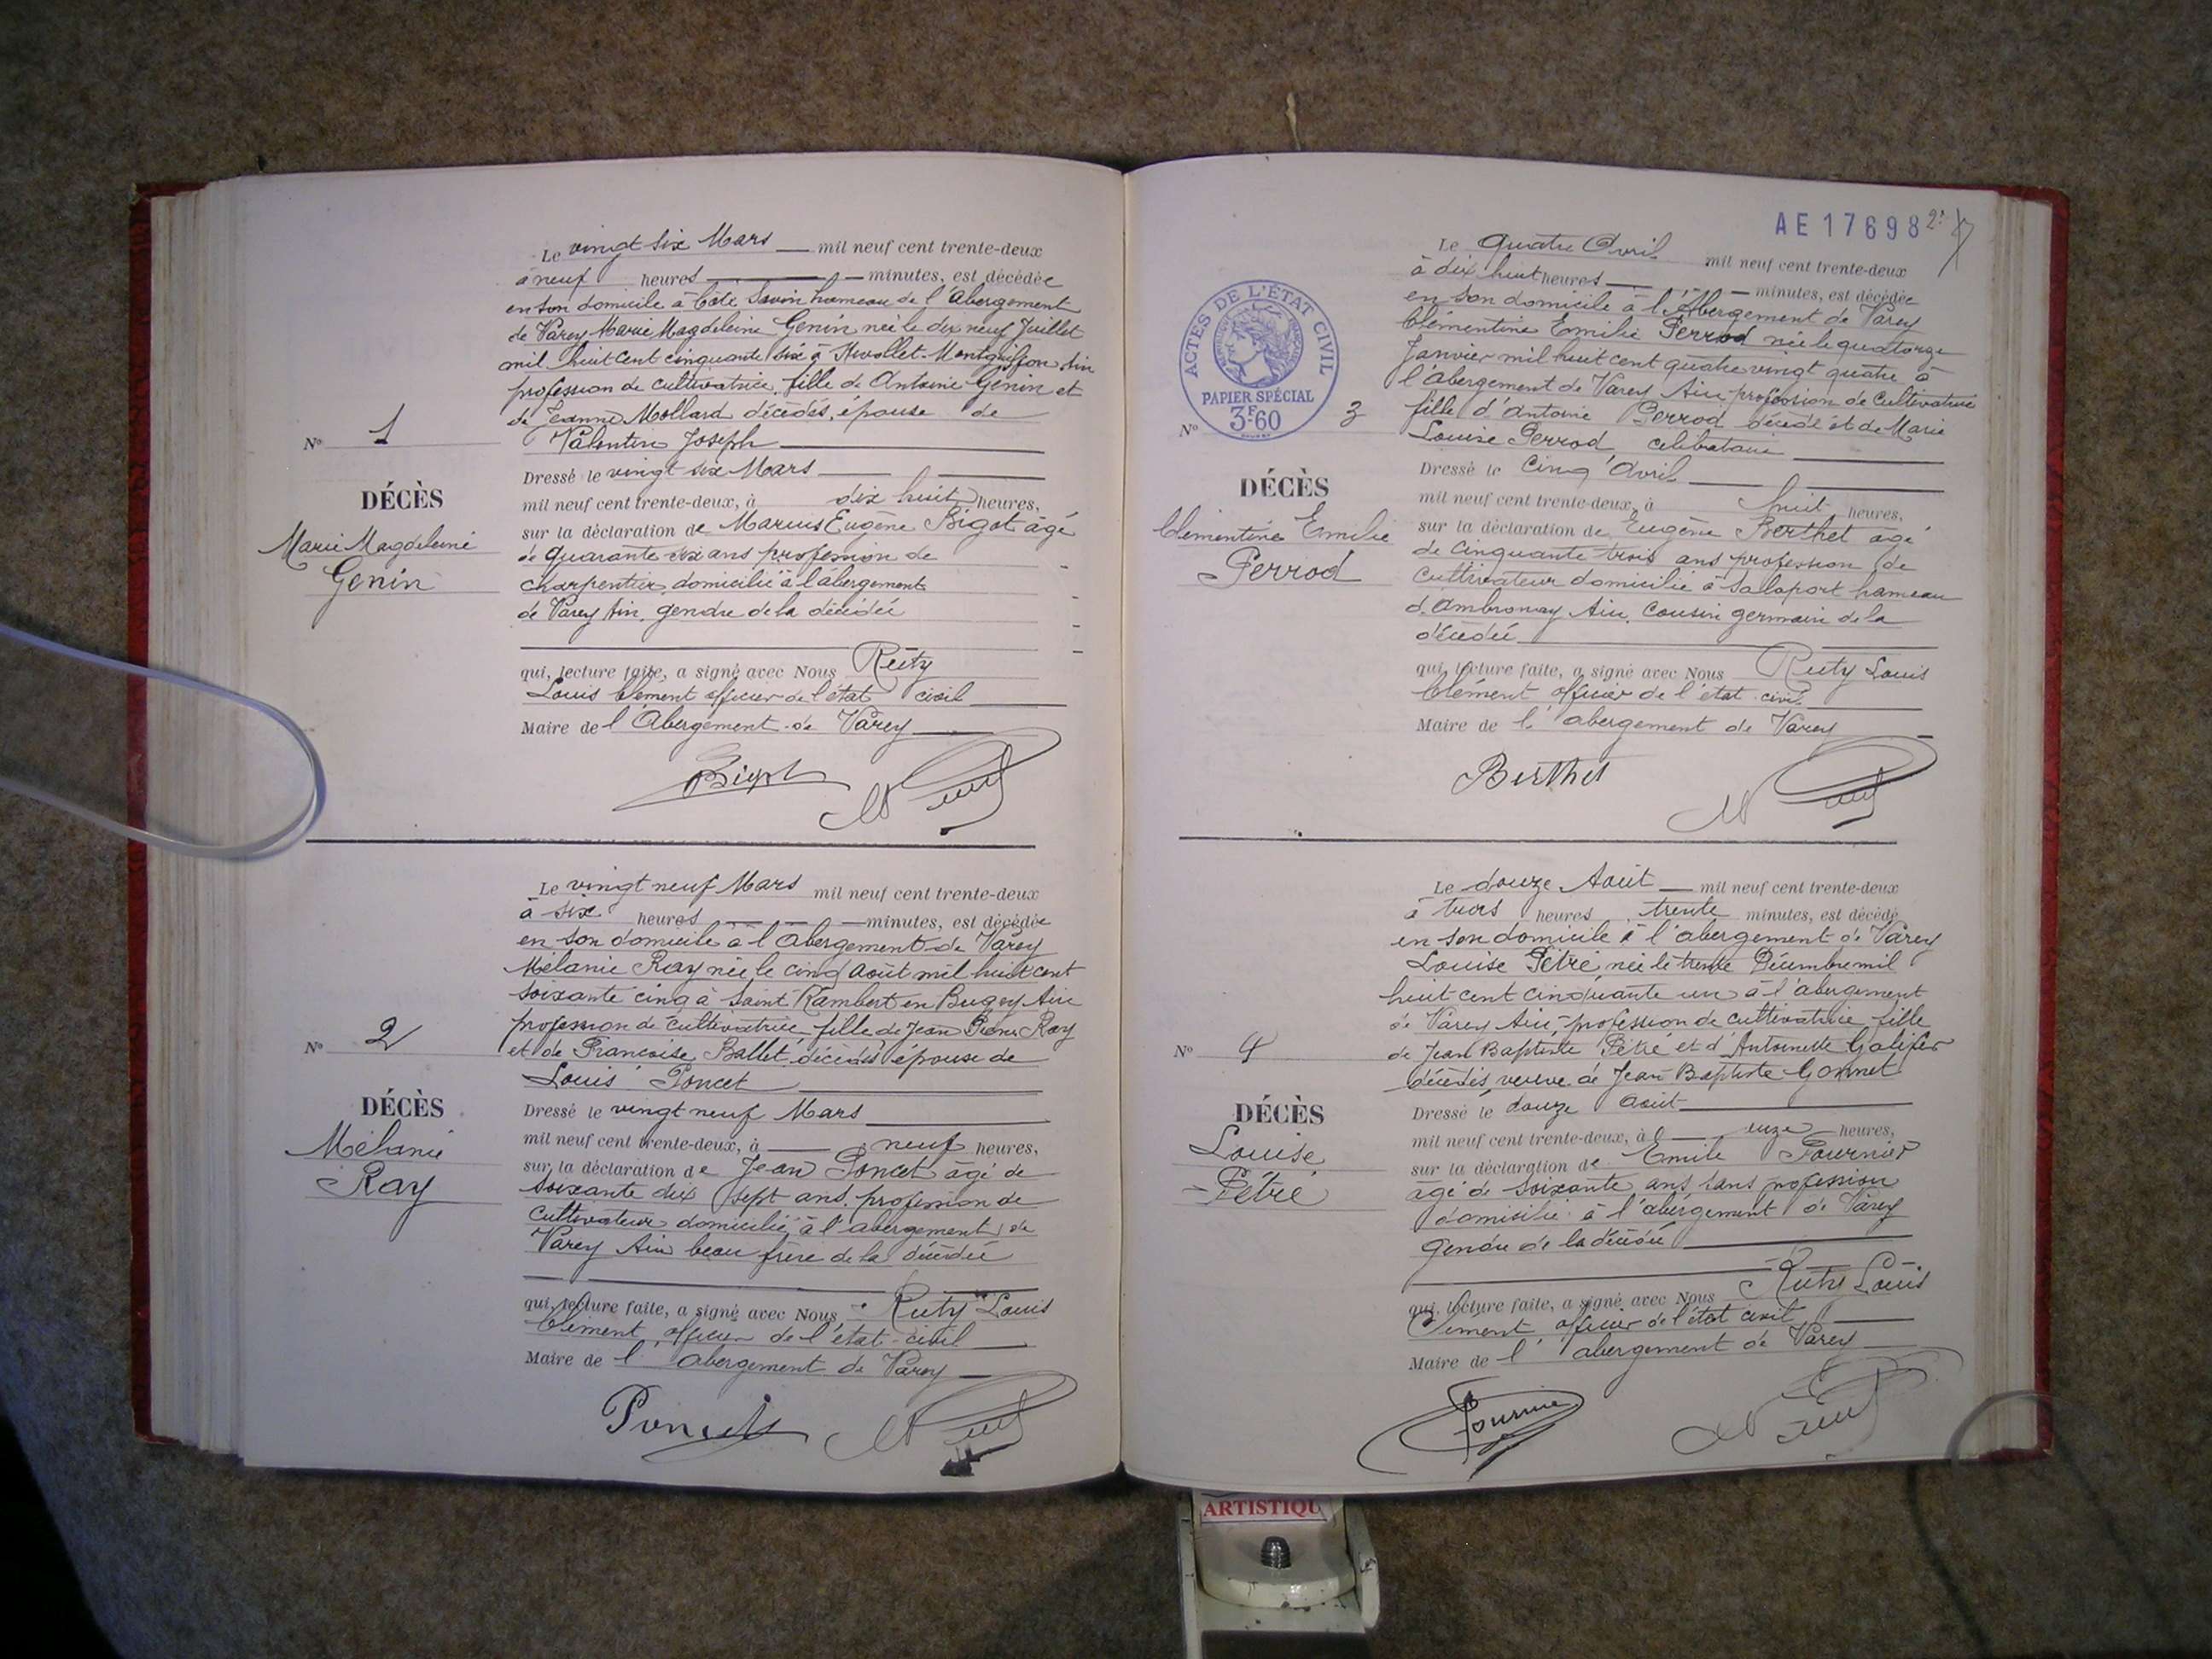 Le vingt six Mars mil neuf cent trente-deux
à neuf heures minutes, est décédée
en son domicile à Côte Savin hameau de l'Abergement
de Varey Marie Magdeleine Genin née le dix neuf Juillet
mil huit cent cinquante six à Nivollet-Montgriffon Ain
profession de cultivatrice, fille de Antoine Genin et
de Jeanne Mollard décédés, épouse de
Valentin Joseph
Nº 1
DÉCÈS
Marie Magdeleine
Genin
Dressé le vingt six Mars
mil neuf cent trente-deux, à dix huit heures,
sur la déclaration de Marius Eugène Bigot âgé
de quarante six ans profession de
charpentier, domicilié à l'abergement
de Varey Ain, gendre de la décédée
qui, lecture faite, a signé avec Nous Ruty
Louis Clément officier de l'état civil
Maire de l'Abergement de Varey
Bigot
Le vingt neuf Mars mil neuf cent trente-deux
à six heures minutes, est décédée
en son domicile à l'Abergement de Varey
Mélanie Ray née le cinq août mil huit cent
soixante cinq à Saint Rambert en Bugey Ain
profession de cultivatrice fille de Jean Pierre Ray
et de Francoise Ballet décédés épouse de
Louis Poncet
Nº 2
DÉCÈS
Mélanie
Ray
Dressé le vingt neuf Mars
mil neuf cent trente-deux, à neuf heures,
sur la déclaration de Jean Poncet âgé de
soixante dix sept ans profession de
cultivateur domicilié à l'abergement de
Varey Ain beau frère de la décédée
qui, lecture faite, a signé avec Nous, Ruty Louis
Clément, officier de l'état-civil
Maire de l'abergement de Varey
Poncet
AE 17698
Le quatre Avril mil neuf cent trente-deux
à dix huit heures minutes, est décédée
en son domicile à l'Abergement de Varey
Clémentine Emilie Perrod née le quatorze
Janvier mil huit cent quatre vingt quatre à
l'abergement de Varey Ain profession de cultivatrice
fille d'Antoine Perrod décédé et de Marie
Louise Perrod, célibataire
ACTES DE L'ÉTAT CIVIL
RÉPUBLIQUE FRANÇAISE
PAPIER SPÉCIAL
3F60
Nº 3
DÉCÈS
Clémentine Emilie
Perrod
Dressé le cinq Avril
mil neuf cent trente-deux, à huit heures,
sur la déclaration de Eugène Berthet âgé
de cinquante trois ans profession de
cultivateur domicilié à Salaport hameau
d'Ambronay Ain, cousin germain de la
décédée
qui, lecture faite, a signé avec Nous Ruty Louis
Clément officier de l'état civil
Maire de l'abergement de Varey
Berthet
Le douze Août mil neuf cent trente-deux
à trois heures trente minutes, est décédé
en son domicile à l'abergement de Varey
Louise Pétré née le trente Décembre mil
huit cent cinquante un à l'abergement
de Varey Ain, profession de cultivatrice fille
de Jean Baptiste Pétré et d'Antoinette Galifer
décédés, veuve de Jean Baptiste Gonnet
Nº 4
DÉCÈS
Louise
Pétré
Dressé le douze Août
mil neuf cent trente-deux, à onze heures,
sur la déclaration de Emile Fournier
âgé de soixante ans sans profession
domicilié à l'abergement de Varey
gendre de la décédée
qui, lecture faite, a signé avec Nous Ruty Louis
Clément officier de l'état civil
Maire de l'abergement de Varey
Fournier
ARTISTIQU